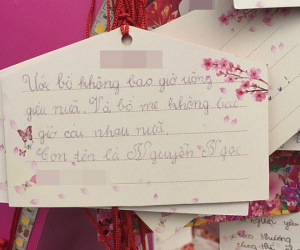 Ước bố không bao giờ uống
rượu nữa. Và bố mẹ không bao
giờ cãi nhau nữa.
Con tên là Nguyễn Ngọc